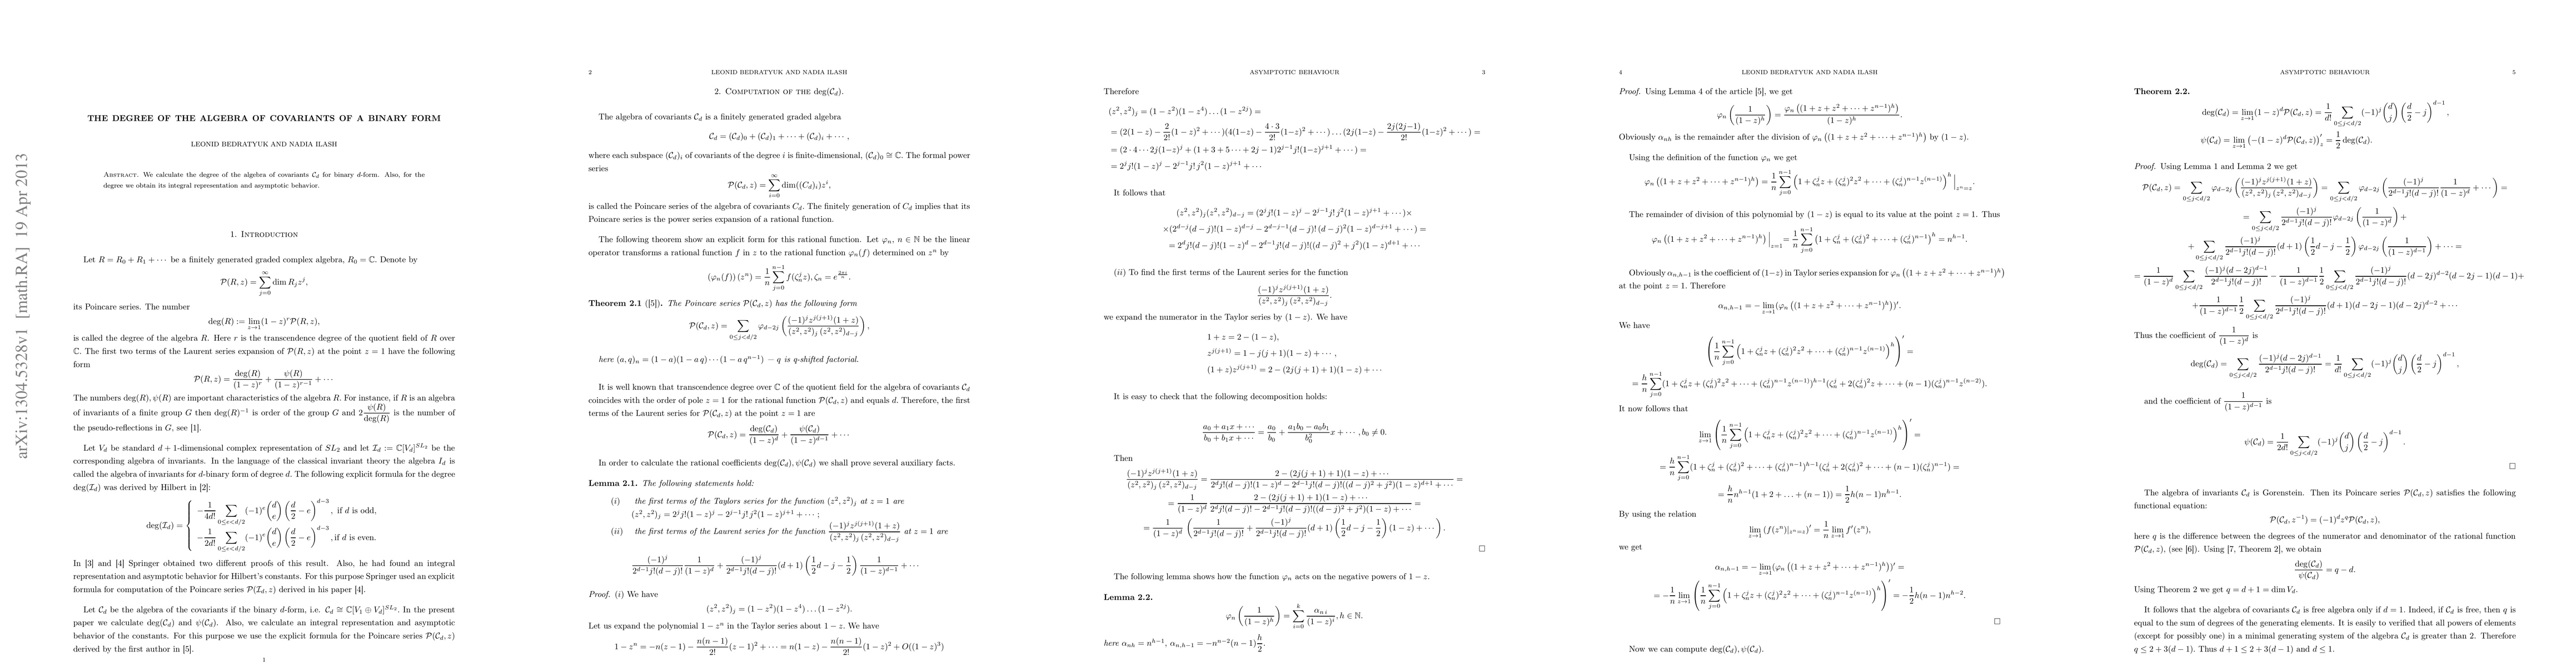 arXiv:1304.5328v1 [math.RA] 19 Apr 2013
THE DEGREE OF THE ALGEBRA OF COVARIANTS OF A BINARY FORM
LEONID BEDRATYUK AND NADIA ILASH
Abstract. We calculate the degree of the algebra of covariants C_d for binary d-form. Also, for the
degree we obtain its integral representation and asymptotic behavior.
1. Introduction
Let R = R_0 + R_1 + ··· be a finitely generated graded complex algebra, R_0 = ℂ. Denote by
P(R, z) = ∑_{j=0}^{∞} dim R_j z^j,
its Poincare series. The number
deg(R) := lim_{z→1}(1 − z)^r P(R, z),
is called the degree of the algebra R. Here r is the transcendence degree of the quotient field of R over
ℂ. The first two terms of the Laurent series expansion of P(R, z) at the point z = 1 have the following
form
P(R, z) = deg(R)/(1 − z)^r + ψ(R)/(1 − z)^{r−1} + ···
The numbers deg(R), ψ(R) are important characteristics of the algebra R. For instance, if R is an algebra
of invariants of a finite group G then deg(R)^{−1} is order of the group G and 2 ψ(R)/deg(R) is the number of
the pseudo-reflections in G, see [1].
Let V_d be standard d + 1-dimensional complex representation of SL_2 and let I_d := ℂ[V_d]^{SL_2} be the
corresponding algebra of invariants. In the language of the classical invariant theory the algebra I_d is
called the algebra of invariants for d-binary form of degree d. The following explicit formula for the degree
deg(I_d) was derived by Hilbert in [2]:
deg(I_d) = { −1/(4d!) ∑_{0≤e<d/2} (−1)^e (d choose e) (d/2 − e)^{d−3}, if d is odd,
−1/(2d!) ∑_{0≤e<d/2} (−1)^e (d choose e) (d/2 − e)^{d−3}, if d is even.
In [3] and [4] Springer obtained two different proofs of this result. Also, he had found an integral
representation and asymptotic behavior for Hilbert's constants. For this purpose Springer used an explicit
formula for computation of the Poincare series P(I_d, z) derived in his paper [4].
Let C_d be the algebra of the covariants if the binary d-form, i.e. C_d ≅ ℂ[V_1 ⊕ V_d]^{SL_2}. In the present
paper we calculate deg(C_d) and ψ(C_d). Also, we calculate an integral representation and asymptotic
behavior of the constants. For this purpose we use the explicit formula for the Poincare series P(C_d, z)
derived by the first author in [5].
1
2 LEONID BEDRATYUK AND NADIA ILASH
2. Computation of the deg(C_d).
The algebra of covariants C_d is a finitely generated graded algebra
C_d = (C_d)_0 + (C_d)_1 + ··· + (C_d)_i + ··· ,
where each subspace (C_d)_i of covariants of the degree i is finite-dimensional, (C_d)_0 ≅ ℂ. The formal power
series
P(C_d, z) = ∑_{i=0}^{∞} dim((C_d)_i) z^i,
is called the Poincare series of the algebra of covariants C_d. The finitely generation of C_d implies that its
Poincare series is the power series expansion of a rational function.
The following theorem show an explicit form for this rational function. Let φ_n, n ∈ ℕ be the linear
operator transforms a rational function f in z to the rational function φ_n(f) determined on z^n by
(φ_n(f))(z^n) = 1/n ∑_{j=0}^{n−1} f(ζ_n^j z), ζ_n = e^{2πi/n}.
Theorem 2.1 ([5]). The Poincare series P(C_d, z) has the following form
P(C_d, z) = ∑_{0≤j<d/2} φ_{d−2j} ( (−1)^j z^{j(j+1)}(1 + z) / ((z^2, z^2)_j (z^2, z^2)_{d−j}) ),
here (a, q)_n = (1 − a)(1 − a q) ··· (1 − a q^{n−1}) − q is q-shifted factorial.
It is well known that transcendence degree over ℂ of the quotient field for the algebra of covariants C_d
coincides with the order of pole z = 1 for the rational function P(C_d, z) and equals d. Therefore, the first
terms of the Laurent series for P(C_d, z) at the point z = 1 are
P(C_d, z) = deg(C_d)/(1 − z)^d + ψ(C_d)/(1 − z)^{d−1} + ···
In order to calculate the rational coefficients deg(C_d), ψ(C_d) we shall prove several auxiliary facts.
Lemma 2.1. The following statements hold:
(i) the first terms of the Taylors series for the function (z^2, z^2)_j at z = 1 are
(z^2, z^2)_j = 2^j j!(1 − z)^j − 2^{j−1} j! j^2(1 − z)^{j+1} + ··· ;
(ii) the first terms of the Laurent series for the function (−1)^j z^{j(j+1)}(1 + z) / ((z^2, z^2)_j (z^2, z^2)_{d−j}) at z = 1 are
(−1)^j/(2^{d−1} j!(d − j)!) 1/(1 − z)^d + (−1)^j/(2^{d−1} j!(d − j)!) (d + 1)(1/2 d − j − 1/2) 1/(1 − z)^{d−1} + ···
Proof. (i) We have
(z^2, z^2)_j = (1 − z^2)(1 − z^4) … (1 − z^{2j}).
Let us expand the polynomial 1 − z^n in the Taylor series about 1 − z. We have
1 − z^n = −n(z − 1) − n(n − 1)/2! (z − 1)^2 + ··· = n(1 − z) − n(n − 1)/2! (1 − z)^2 + O((1 − z)^3)
ASYMPTOTIC BEHAVIOUR 3
Therefore
(z^2, z^2)_j = (1 − z^2)(1 − z^4) … (1 − z^{2j}) =
= (2(1 − z) − 2/2! (1 − z)^2 + ···)(4(1 − z) − 4·3/2! (1 − z)^2 + ···) … (2j(1 − z) − 2j(2j−1)/2! (1 − z)^2 + ···) =
= (2 · 4 ··· 2j(1 − z)^j + (1 + 3 + 5 ··· + 2j − 1)2^{j−1} j!(1 − z)^{j+1} + ··· ) =
= 2^j j!(1 − z)^j − 2^{j−1} j! j^2(1 − z)^{j+1} + ···
It follows that
(z^2, z^2)_j(z^2, z^2)_{d−j} = (2^j j!(1 − z)^j − 2^{j−1} j! j^2(1 − z)^{j+1} + ··· )×
×(2^{d−j}(d − j)!(1 − z)^{d−j} − 2^{d−j−1}(d − j)! (d − j)^2(1 − z)^{d−j+1} + ··· ) =
= 2^d j!(d − j)!(1 − z)^d − 2^{d−1} j!(d − j)!((d − j)^2 + j^2)(1 − z)^{d+1} + ···
(ii) To find the first terms of the Laurent series for the function
(−1)^j z^{j(j+1)}(1 + z) / ((z^2, z^2)_j (z^2, z^2)_{d−j}),
we expand the numerator in the Taylor series by (1 − z). We have
1 + z = 2 − (1 − z),
z^{j(j+1)} = 1 − j(j + 1)(1 − z) + ··· ,
(1 + z)z^{j(j+1)} = 2 − (2j(j + 1) + 1)(1 − z) + ···
It is easy to check that the following decomposition holds:
(a_0 + a_1x + ···)/(b_0 + b_1x + ···) = a_0/b_0 + (a_1b_0 − a_0b_1)/b_0^2 x + ··· , b_0 ≠ 0.
Then
(−1)^j z^{j(j+1)}(1 + z) / ((z^2, z^2)_j (z^2, z^2)_{d−j}) = (2 − (2j(j + 1) + 1)(1 − z) + ···) / (2^d j!(d − j)!(1 − z)^d − 2^{d−1} j!(d − j)!((d − j)^2 + j^2)(1 − z)^{d+1} + ···) =
= 1/(1 − z)^d (2 − (2j(j + 1) + 1)(1 − z) + ···) / (2^d j!(d − j)! − 2^{d−1} j!(d − j)!((d − j)^2 + j^2)(1 − z) + ···) =
= 1/(1 − z)^d ( 1/(2^{d−1} j!(d − j)!) + (−1)^j/(2^{d−1} j!(d − j)!) (d + 1)(1/2 d − j − 1/2)(1 − z) + ··· ).
□
The following lemma shows how the function φ_n acts on the negative powers of 1 − z.
Lemma 2.2.
φ_n (1/(1 − z)^h) = ∑_{i=0}^{h} α_{n i}/(1 − z)^i, h ∈ ℕ.
here α_{nh} = n^{h−1}, α_{n,h−1} = −n^{n−2}(n − 1) h/2.
4 LEONID BEDRATYUK AND NADIA ILASH
Proof. Using Lemma 4 of the article [5], we get
φ_n (1/(1 − z)^h) = φ_n ((1 + z + z^2 + ··· + z^{n−1})^h) / (1 − z)^h.
Obviously α_{nh} is the remainder after the division of φ_n ((1 + z + z^2 + ··· + z^{n−1})^h) by (1 − z).
Using the definition of the function φ_n we get
φ_n ((1 + z + z^2 + ··· + z^{n−1})^h) = 1/n ∑_{j=0}^{n−1} (1 + ζ_n^j z + (ζ_n^j)^2 z^2 + ··· + (ζ_n^j)^{n−1} z^{(n−1)})^h |_{z^n=z}.
The remainder of division of this polynomial by (1 − z) is equal to its value at the point z = 1. Thus
φ_n ((1 + z + z^2 + ··· + z^{n−1})^h)|_{z=1} = 1/n ∑_{j=0}^{n−1} (1 + ζ_n^j + (ζ_n^j)^2 + ··· + (ζ_n^j)^{n−1})^h = n^{h−1}.
Obviously α_{n,h−1} is the coefficient of (1−z) in Taylor series expansion for φ_n ((1 + z + z^2 + ··· + z^{n−1})^h)
at the point z = 1. Therefore
α_{n,h−1} = − lim_{z→1} (φ_n ((1 + z + z^2 + ··· + z^{n−1})^h))′.
We have
( 1/n ∑_{j=0}^{n−1} (1 + ζ_n^j z + (ζ_n^j)^2 z^2 + ··· + (ζ_n^j)^{n−1} z^{(n−1)})^h )′ =
= h/n ∑_{j=0}^{n−1} (1 + ζ_n^j z + (ζ_n^j)^2 z^2 + ··· + (ζ_n^j)^{n−1} z^{(n−1)})^{h−1} (ζ_n^j + 2(ζ_n^j)^2 z + ··· + (n − 1)(ζ_n^j)^{n−1} z^{(n−2)}).
It now follows that
lim_{z→1} ( 1/n ∑_{j=0}^{n−1} (1 + ζ_n^j z + (ζ_n^j)^2 z^2 + ··· + (ζ_n^j)^{n−1} z^{(n−1)})^h )′ =
= h/n ∑_{j=0}^{n−1} (1 + ζ_n^j + (ζ_n^j)^2 + ··· + (ζ_n^j)^{n−1})^{h−1} (ζ_n^j + 2(ζ_n^j)^2 + ··· + (n − 1)(ζ_n^j)^{n−1}) =
= h/n n^{h−1}(1 + 2 + … + (n − 1)) = 1/2 h(n − 1)n^{h−1}.
By using the relation
lim_{z→1} (f(z^n)|_{z^n=z})′ = 1/n lim_{z→1} f′(z^n),
we get
α_{n,h−1} = − lim_{z→1} (φ_n ((1 + z + z^2 + ··· + z^{n−1})^h))′ =
= − 1/n lim_{z→1} ( 1/n ∑_{j=0}^{n−1} (1 + ζ_n^j z + (ζ_n^j)^2 z^2 + ··· + (ζ_n^j)^{n−1} z^{(n−1)})^h )′ = − 1/2 h(n − 1)n^{h−2}.
□
Now we can compute deg(C_d), ψ(C_d).
ASYMPTOTIC BEHAVIOUR 5
Theorem 2.2.
deg(C_d) = lim_{z→1}(1 − z)^d P(C_d, z) = 1/d! ∑_{0≤j<d/2} (−1)^j (d choose j) (d/2 − j)^{d−1},
ψ(C_d) = lim_{z→1} (−(1 − z)^d P(C_d, z))′_z = 1/2 deg(C_d).
Proof. Using Lemma 1 and Lemma 2 we get
P(C_d, z) = ∑_{0≤j<d/2} φ_{d−2j} ( (−1)^j z^{j(j+1)}(1 + z) / ((z^2, z^2)_j (z^2, z^2)_{d−j}) ) = ∑_{0≤j<d/2} φ_{d−2j} ( (−1)^j/(2^{d−1} j!(d − j)!) 1/(1 − z)^d + ··· ) =
= ∑_{0≤j<d/2} (−1)^j/(2^{d−1} j!(d − j)!) φ_{d−2j} (1/(1 − z)^d) +
+ ∑_{0≤j<d/2} (−1)^j/(2^{d−1} j!(d − j)!) (d + 1)(1/2 d − j − 1/2) φ_{d−2j} (1/(1 − z)^{d−1}) + ··· =
= 1/(1 − z)^d ∑_{0≤j<d/2} (−1)^j(d − 2j)^{d−1}/(2^{d−1} j!(d − j)!) − 1/(1 − z)^{d−1} 1/2 ∑_{0≤j<d/2} (−1)^j/(2^{d−1} j!(d − j)!) (d − 2j)^{d−2}(d − 2j − 1)(d − 1)+
+ 1/(1 − z)^{d−1} 1/2 ∑_{0≤j<d/2} (−1)^j/(2^{d−1} j!(d − j)!) (d + 1)(d − 2j − 1)(d − 2j)^{d−2} + ···
Thus the coefficient of 1/(1 − z)^d is
deg(C_d) = ∑_{0≤j<d/2} (−1)^j(d − 2j)^{d−1}/(2^{d−1} j!(d − j)!) = 1/d! ∑_{0≤j<d/2} (−1)^j (d choose j) (d/2 − j)^{d−1},
and the coefficient of 1/(1 − z)^{d−1} is
ψ(C_d) = 1/(2d!) ∑_{0≤j<d/2} (−1)^j (d choose j) (d/2 − j)^{d−1}.
□
The algebra of invariants C_d is Gorenstein. Then its Poincare series P(C_d, z) satisfies the following
functional equation:
P(C_d, z^{−1}) = (−1)^d z^q P(C_d, z),
here q is the difference between the degrees of the numerator and denominator of the rational function
P(C_d, z), (see [6]). Using [7, Theorem 2], we obtain
deg(C_d)/ψ(C_d) = q − d.
Using Theorem 2 we get q = d + 1 = dim V_d.
It follows that the algebra of covariants C_d is free algebra only if d = 1. Indeed, if C_d is free, then q is
equal to the sum of degrees of the generating elements. It is easily to verified that all powers of elements
(except for possibly one) in a minimal generating system of the algebra C_d is greater than 2. Therefore
q ≤ 2 + 3(d − 1). Thus d + 1 ≤ 2 + 3(d − 1) and d ≤ 1.